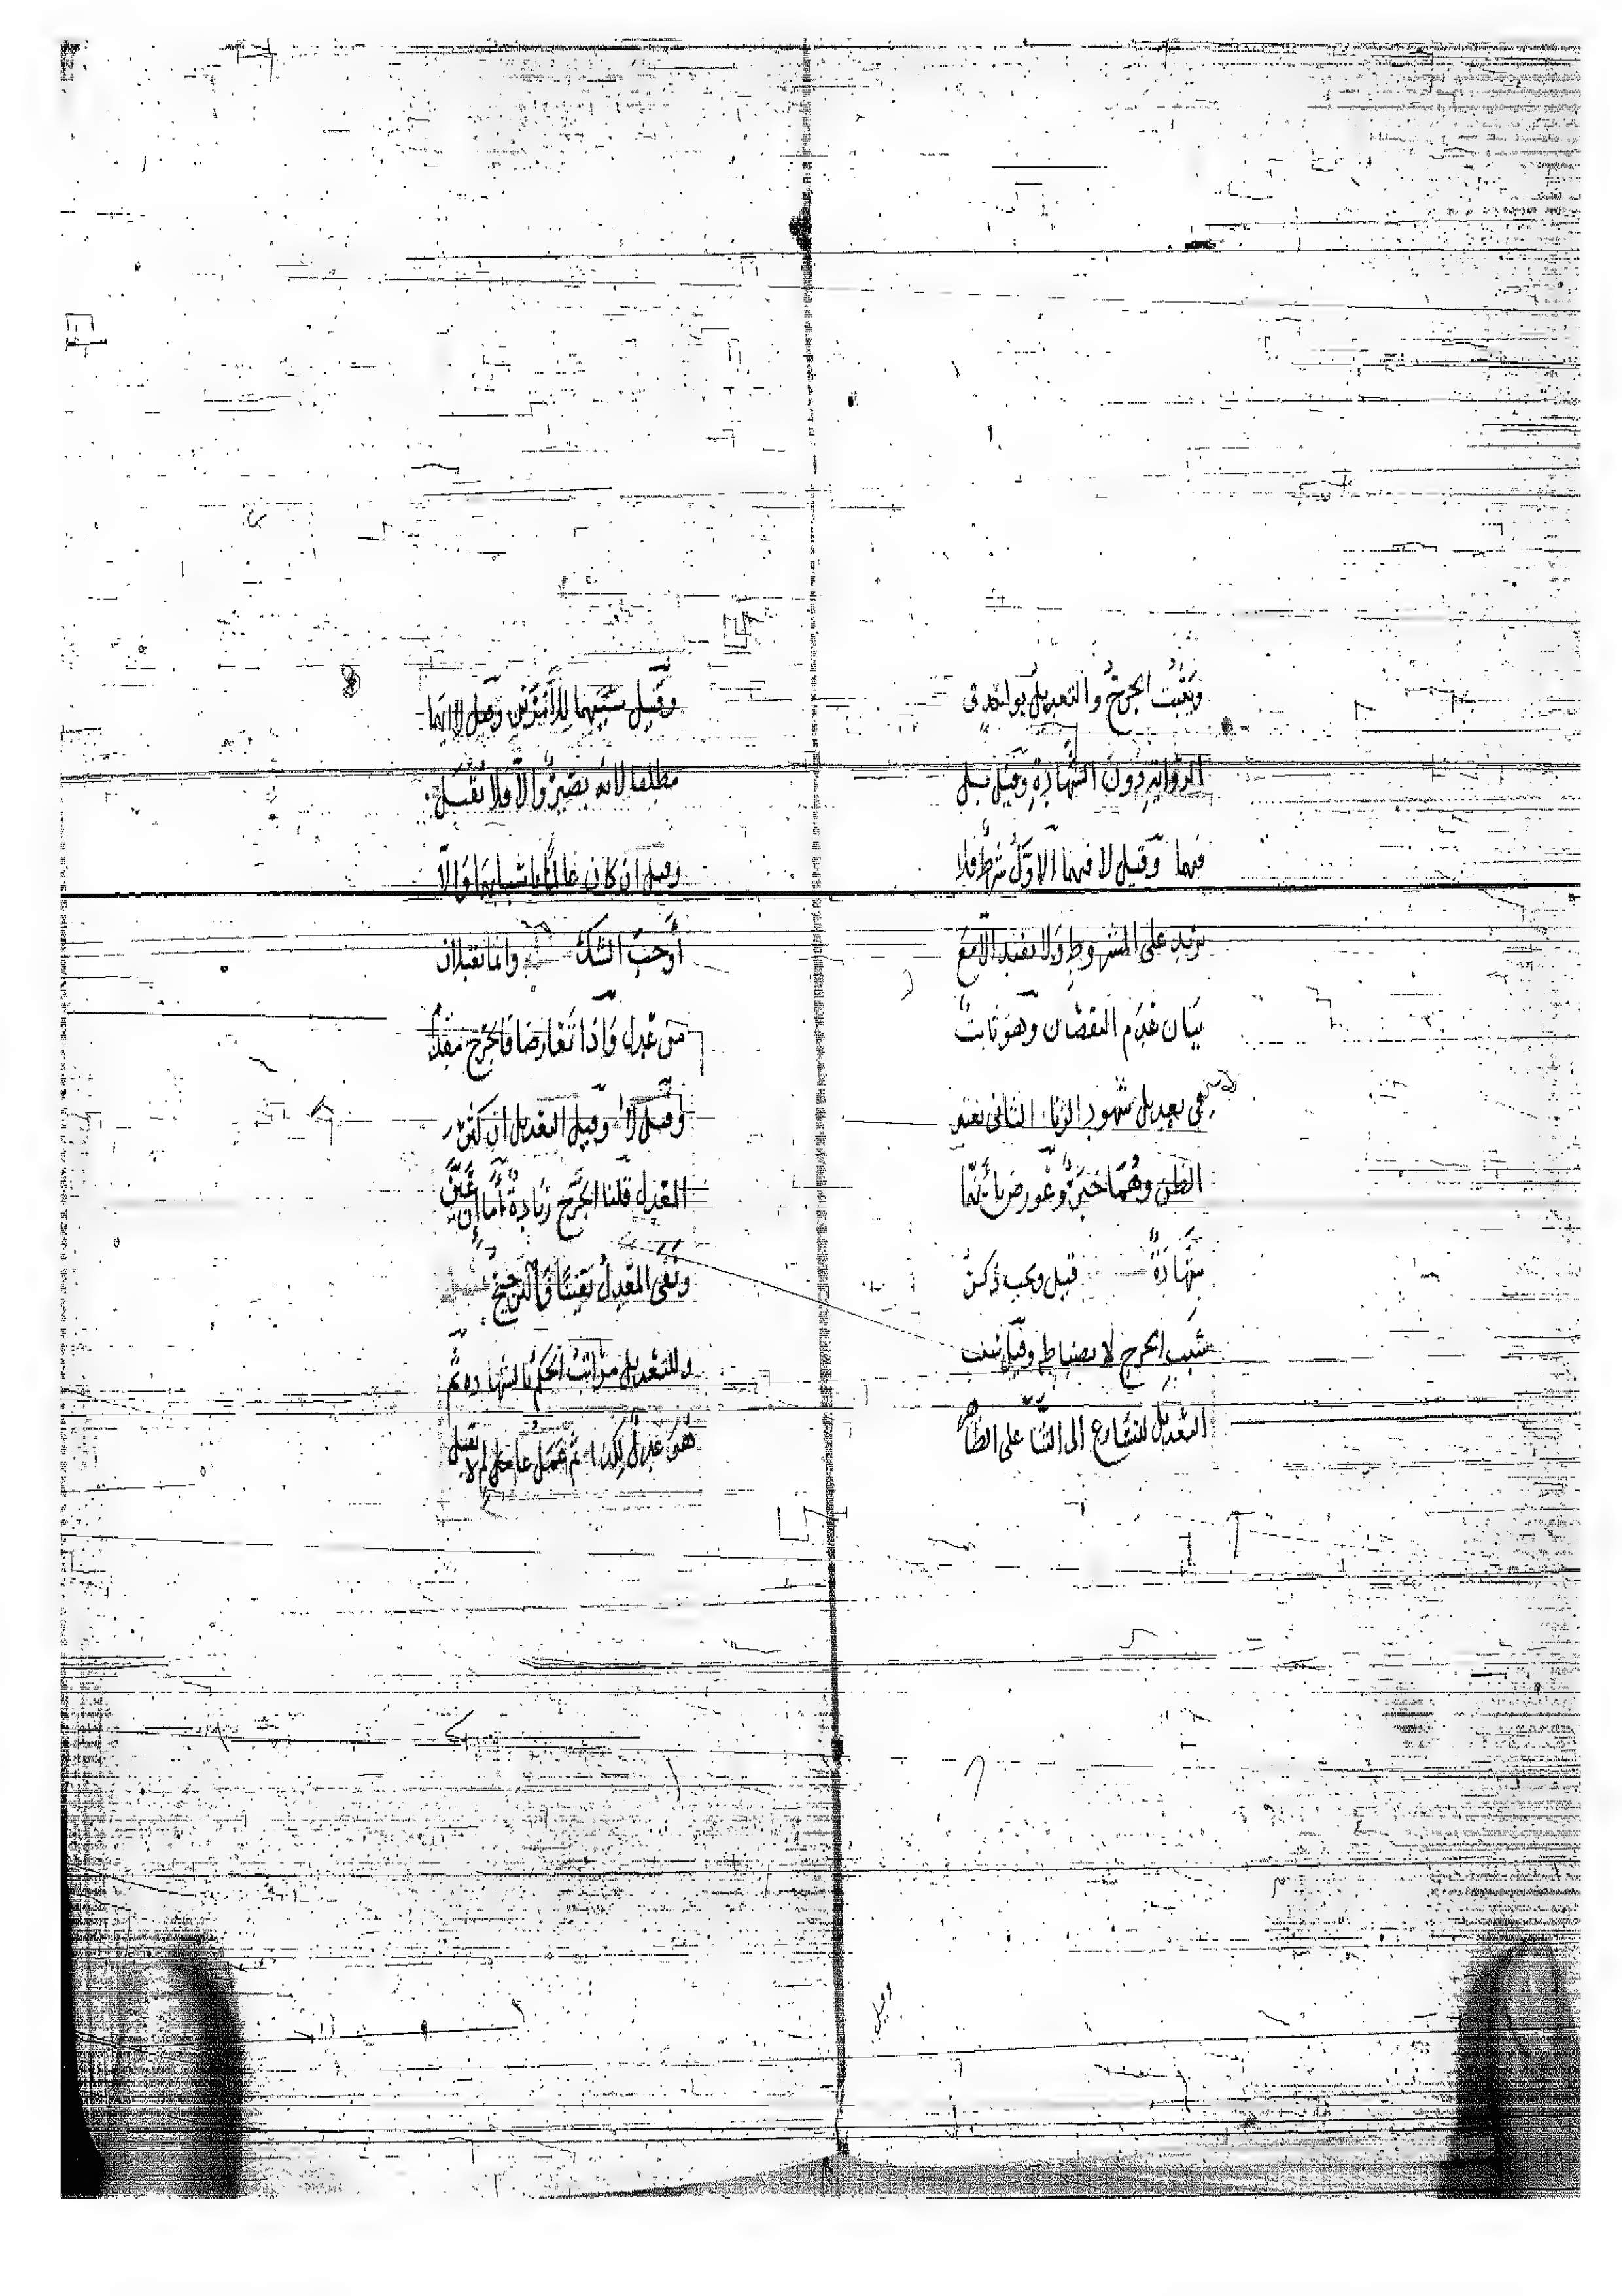 ويثبت الجرحُ والتعديل بواحد في
الرواية دون الشهادة وقيل بل
فيهما وقيل لا فيهما الاوّل شرط فلا
يزيد على المشروط ولا يفيد الامع
بيان عدم النقصان وهو ثابت
في تعديل شهود الزنا الثاني
الظن وهما خبر وعورض بأنهما
شهادة قيل ويجب ذكر
سبب الجرح لا
التعديل الى الثنا على الظاهر
وقيل سببهما للأمرين وقيل لا ايهما
مطلقا لانه بصير والا فلا تقبل
وقيل ان كان عالما باسبابهما والا
أوجب الشك وانما يقبلان
من عدل واذا تعارضا فالجرح مقدم
وقيل لا وقيل التعديل ان كثر
المعدل قلنا الجرح زيادة أما أن عين
ونفى المعدل يقينا فالترجيح
وللتعديل مراتب الحكم بالشهادة ثم
هو عدل لكذا ثم عمل عامل لا يقبل